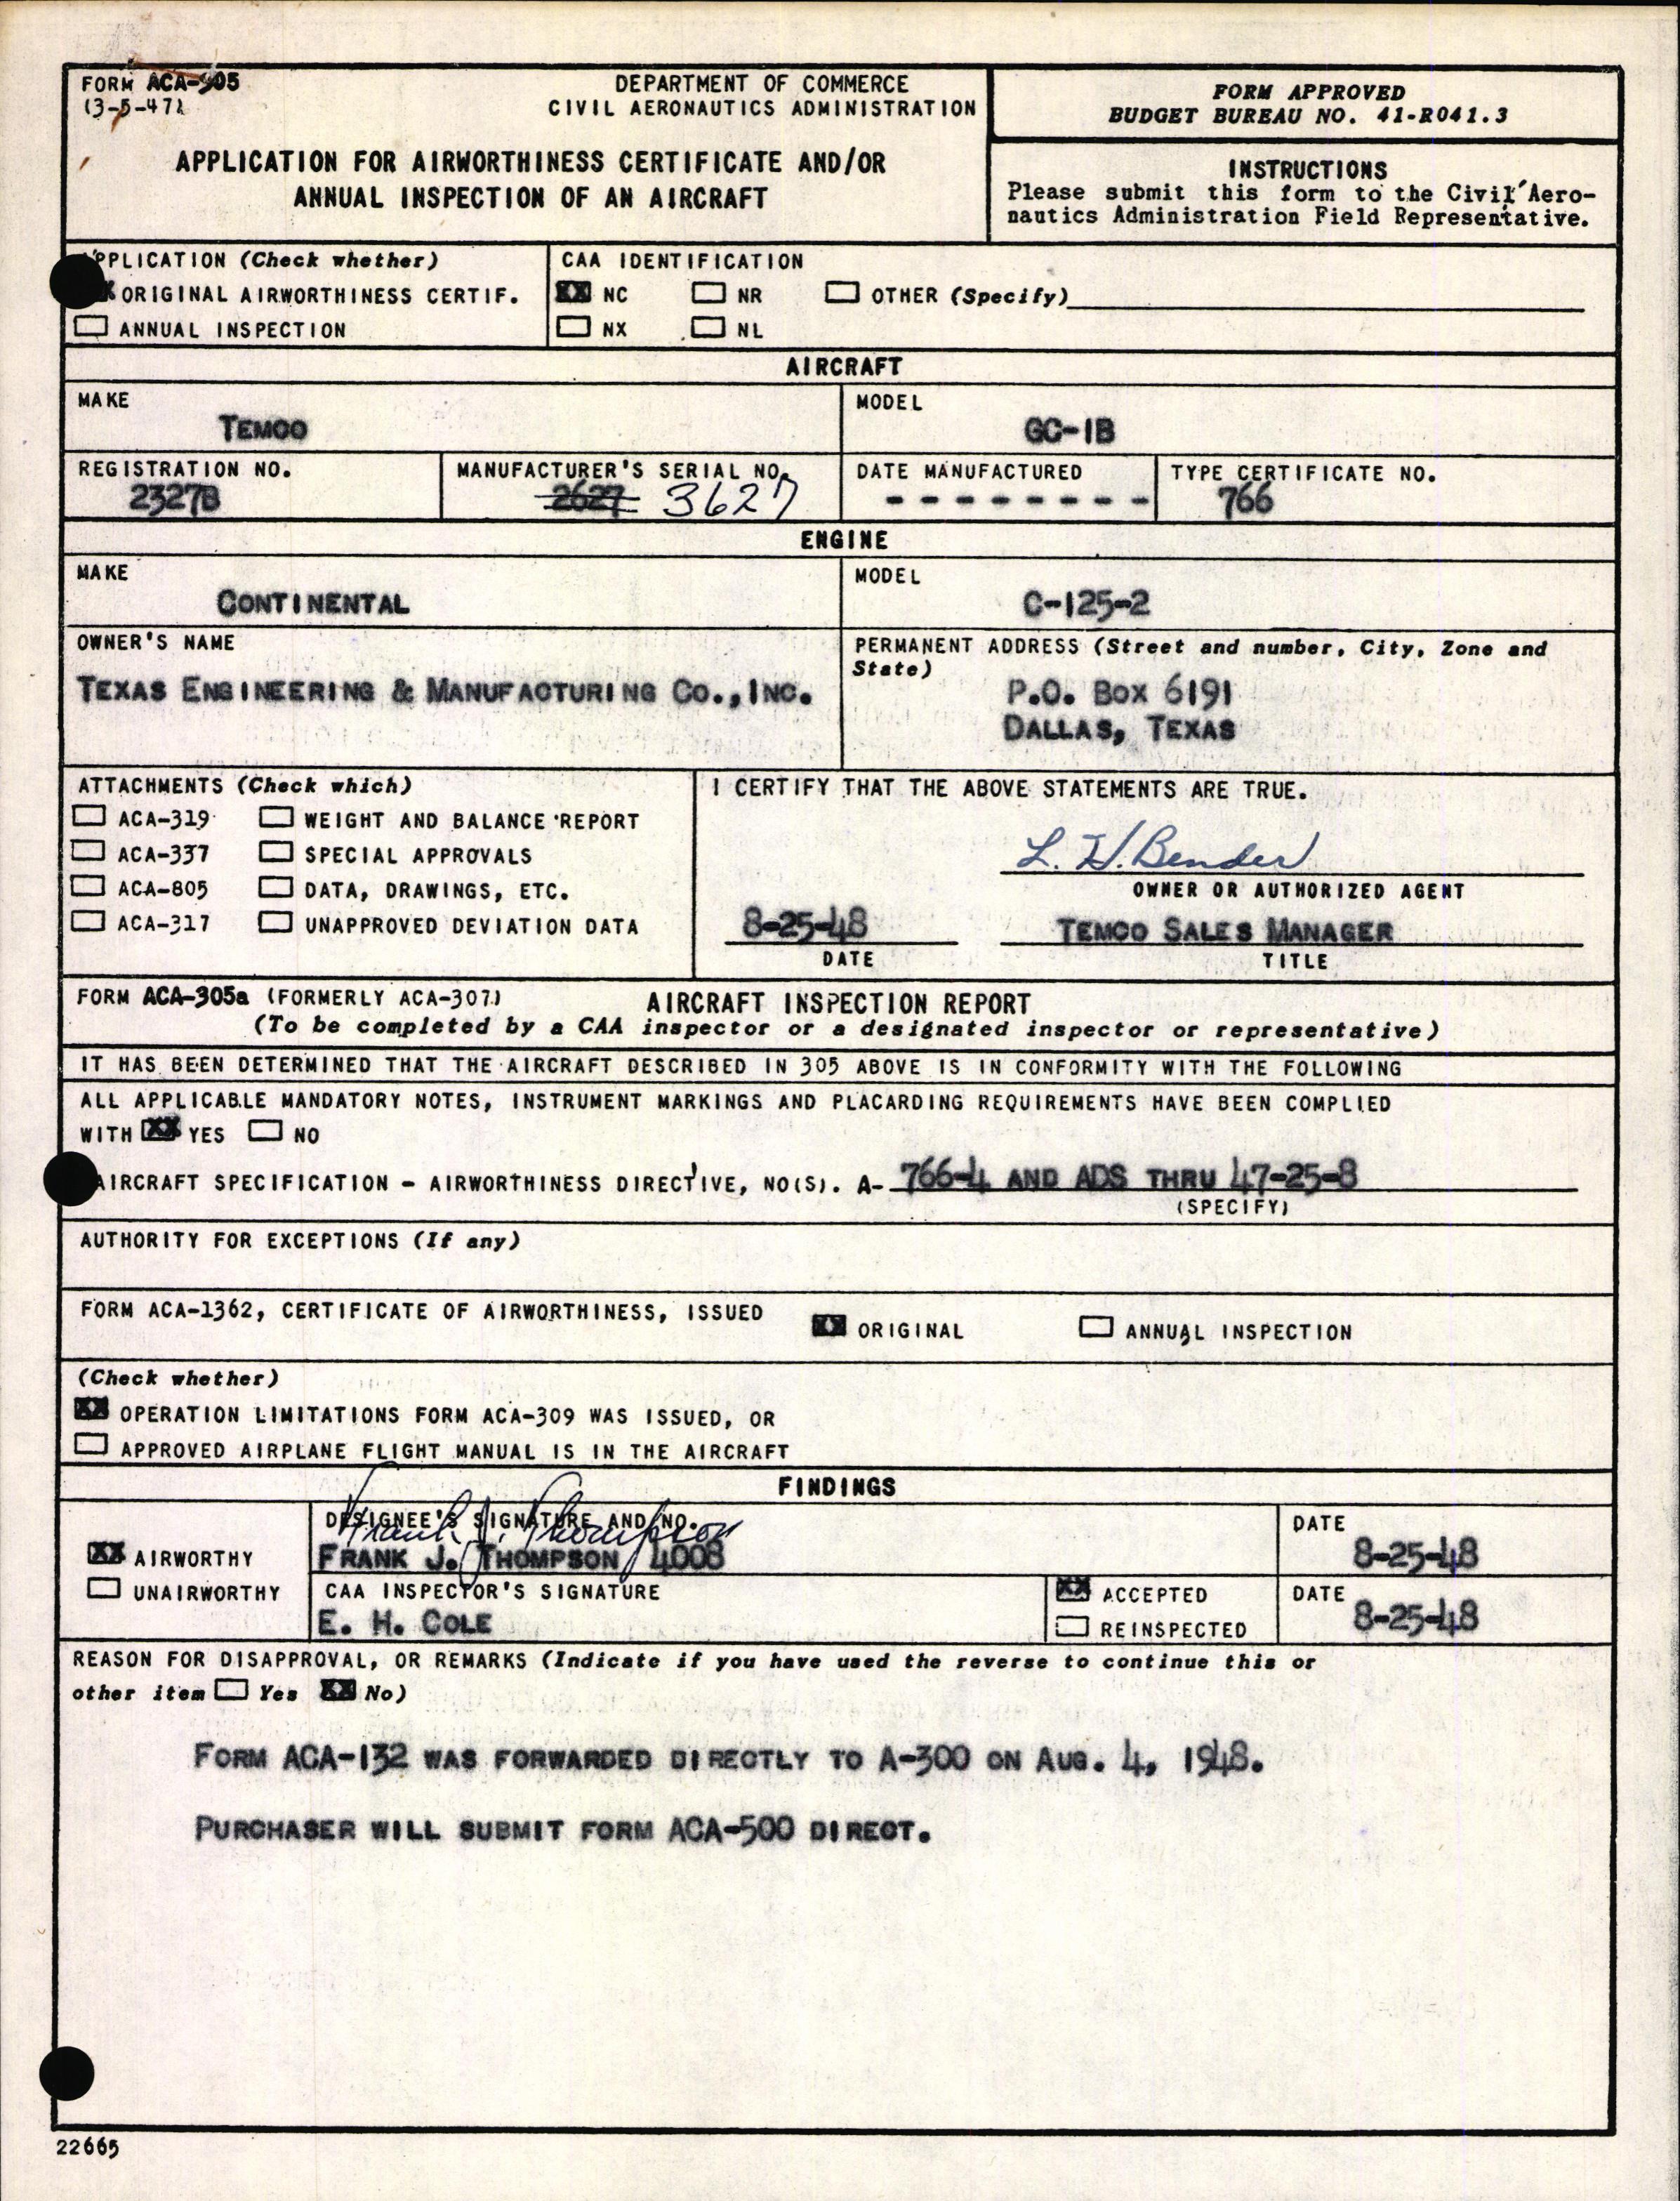 FORM ACA-305
(3-5-47)
DEPARTMENT OF COMMERCE
CIVIL AERONAUTICS ADMINISTRATION
APPLICATION FOR AIRWORTHINESS CERTIFICATE AND/OR
ANNUAL INSPECTION OF AN AIRCRAFT
FORM APPROVED
BUDGET BUREAU NO. 41-R041.3
INSTRUCTIONS
Please submit this form to the Civil Aero-
nautics Administration Field Representative.
APPLICATION (Check whether)
X ORIGINAL AIRWORTHINESS CERTIF.
ANNUAL INSPECTION
CAA IDENTIFICATION
XX NC NR OTHER (Specify)
NX NL
AIRCRAFT
MAKE
TEMCO
MODEL
GC-1B
REGISTRATION NO.
2327B
MANUFACTURER'S SERIAL NO.
2627 3627
DATE MANUFACTURED
- - - - - - - -
TYPE CERTIFICATE NO.
766
ENGINE
MAKE
CONTINENTAL
MODEL
C-125-2
OWNER'S NAME
TEXAS ENGINEERING & MANUFACTURING CO., INC.
PERMANENT ADDRESS (Street and number, City, Zone and
State)
P.O. BOX 6191
DALLAS, TEXAS
ATTACHMENTS (Check which)
ACA-319 WEIGHT AND BALANCE REPORT
ACA-337 SPECIAL APPROVALS
ACA-805 DATA, DRAWINGS, ETC.
ACA-317 UNAPPROVED DEVIATION DATA
I CERTIFY THAT THE ABOVE STATEMENTS ARE TRUE.
L. H. Bender
OWNER OR AUTHORIZED AGENT
8-25-48 TEMCO SALES MANAGER
DATE TITLE
FORM ACA-305a (FORMERLY ACA-307) AIRCRAFT INSPECTION REPORT
(To be completed by a CAA inspector or a designated inspector or representative)
IT HAS BEEN DETERMINED THAT THE AIRCRAFT DESCRIBED IN 305 ABOVE IS IN CONFORMITY WITH THE FOLLOWING
ALL APPLICABLE MANDATORY NOTES, INSTRUMENT MARKINGS AND PLACARDING REQUIREMENTS HAVE BEEN COMPLIED
WITH XX YES NO
AIRCRAFT SPECIFICATION - AIRWORTHINESS DIRECTIVE, NO(S). A- 766-4 AND ADS THRU 47-25-8
(SPECIFY)
AUTHORITY FOR EXCEPTIONS (If any)
FORM ACA-1362, CERTIFICATE OF AIRWORTHINESS, ISSUED XX ORIGINAL ANNUAL INSPECTION
(Check whether)
XX OPERATION LIMITATIONS FORM ACA-309 WAS ISSUED, OR
APPROVED AIRPLANE FLIGHT MANUAL IS IN THE AIRCRAFT
FINDINGS
XX AIRWORTHY
UNAIRWORTHY
DESIGNEE'S SIGNATURE AND NO.
Frank J. Thompson
FRANK J. THOMPSON 4008
DATE
8-25-48
CAA INSPECTOR'S SIGNATURE
E. H. COLE
XX ACCEPTED
REINSPECTED
DATE
8-25-48
REASON FOR DISAPPROVAL, OR REMARKS (Indicate if you have used the reverse to continue this or
other item Yes XX No)
FORM ACA-132 WAS FORWARDED DIRECTLY TO A-300 ON AUG. 4, 1948.
PURCHASER WILL SUBMIT FORM ACA-500 DIRECT.
22665